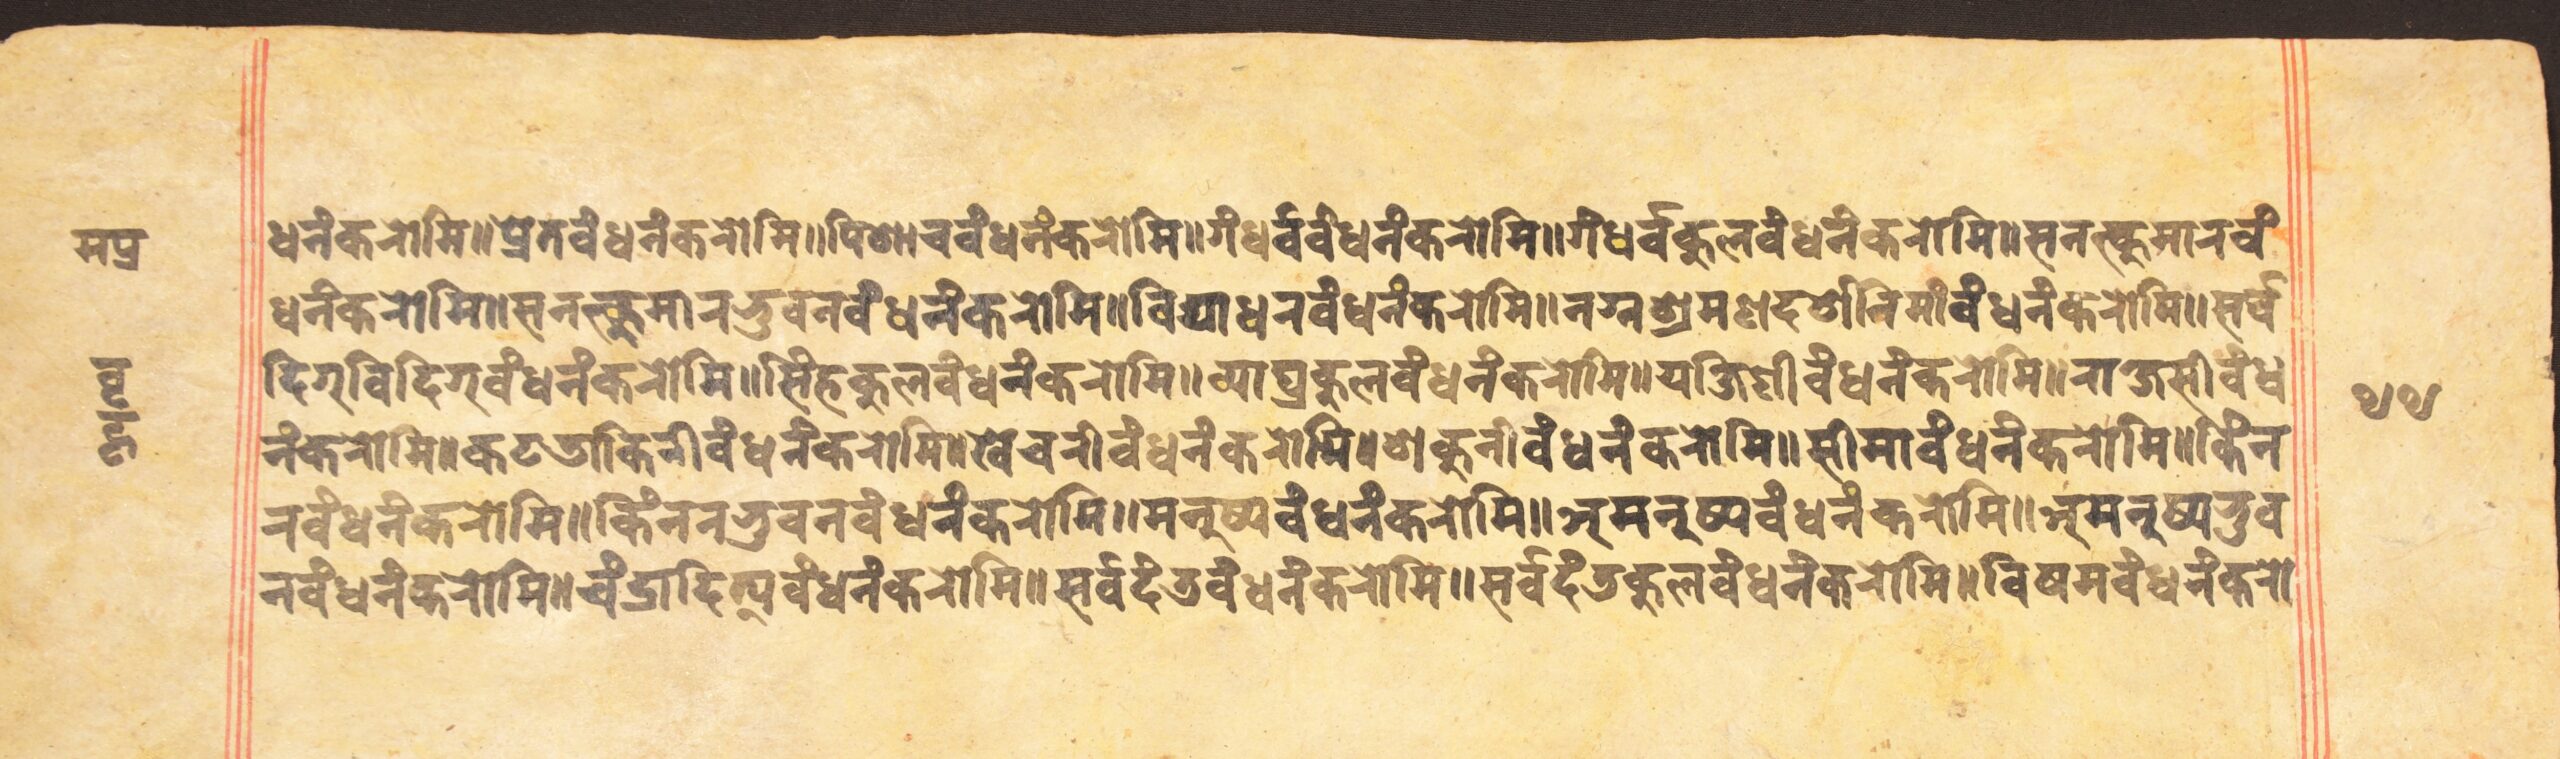 मप्र
वृ
र्ह
धनंकरोमि॥प्रेतवंधनंकरोमि॥पिशाचवंधनंकरोमि॥गंधर्ववंधनंकरोमि॥गंधर्वकुलवंधनंकरोमि॥सनत्कुमारवं
धनंकरोमि॥सनत्कुमारभुवनवंधनंकरोमि॥विद्याधरवंधनंकरोमि॥नग्नश्रमणदर्शनिमीवंधनंकरोमि॥सर्व
दिग्विदिग्वंधनंकरोमि॥सिंहकुलवंधनंकरोमि॥व्याघ्रकुलवंधनंकरोमि॥यक्षिणीवंधनंकरोमि॥राक्षसीवंध
नंकरोमि॥कटडाकिनीवंधनंकरोमि॥खेचरीवंधनंकरोमि॥शकुनीवंधनंकरोमि॥सीमावंधनंकरोमि॥किंन
रवंधनंकरोमि॥किंनरभुवनवंधनंकरोमि॥मनुष्यवंधनंकरोमि॥अमनुष्यवंधनंकरोमि॥अमनुष्यभुव
नवंधनंकरोमि॥चंद्रादित्यवंधनंकरोमि॥सर्वदंडवंधनंकरोमि॥सर्वदंडकुलवंधनंकरोमि॥विषमवंधनंकरो